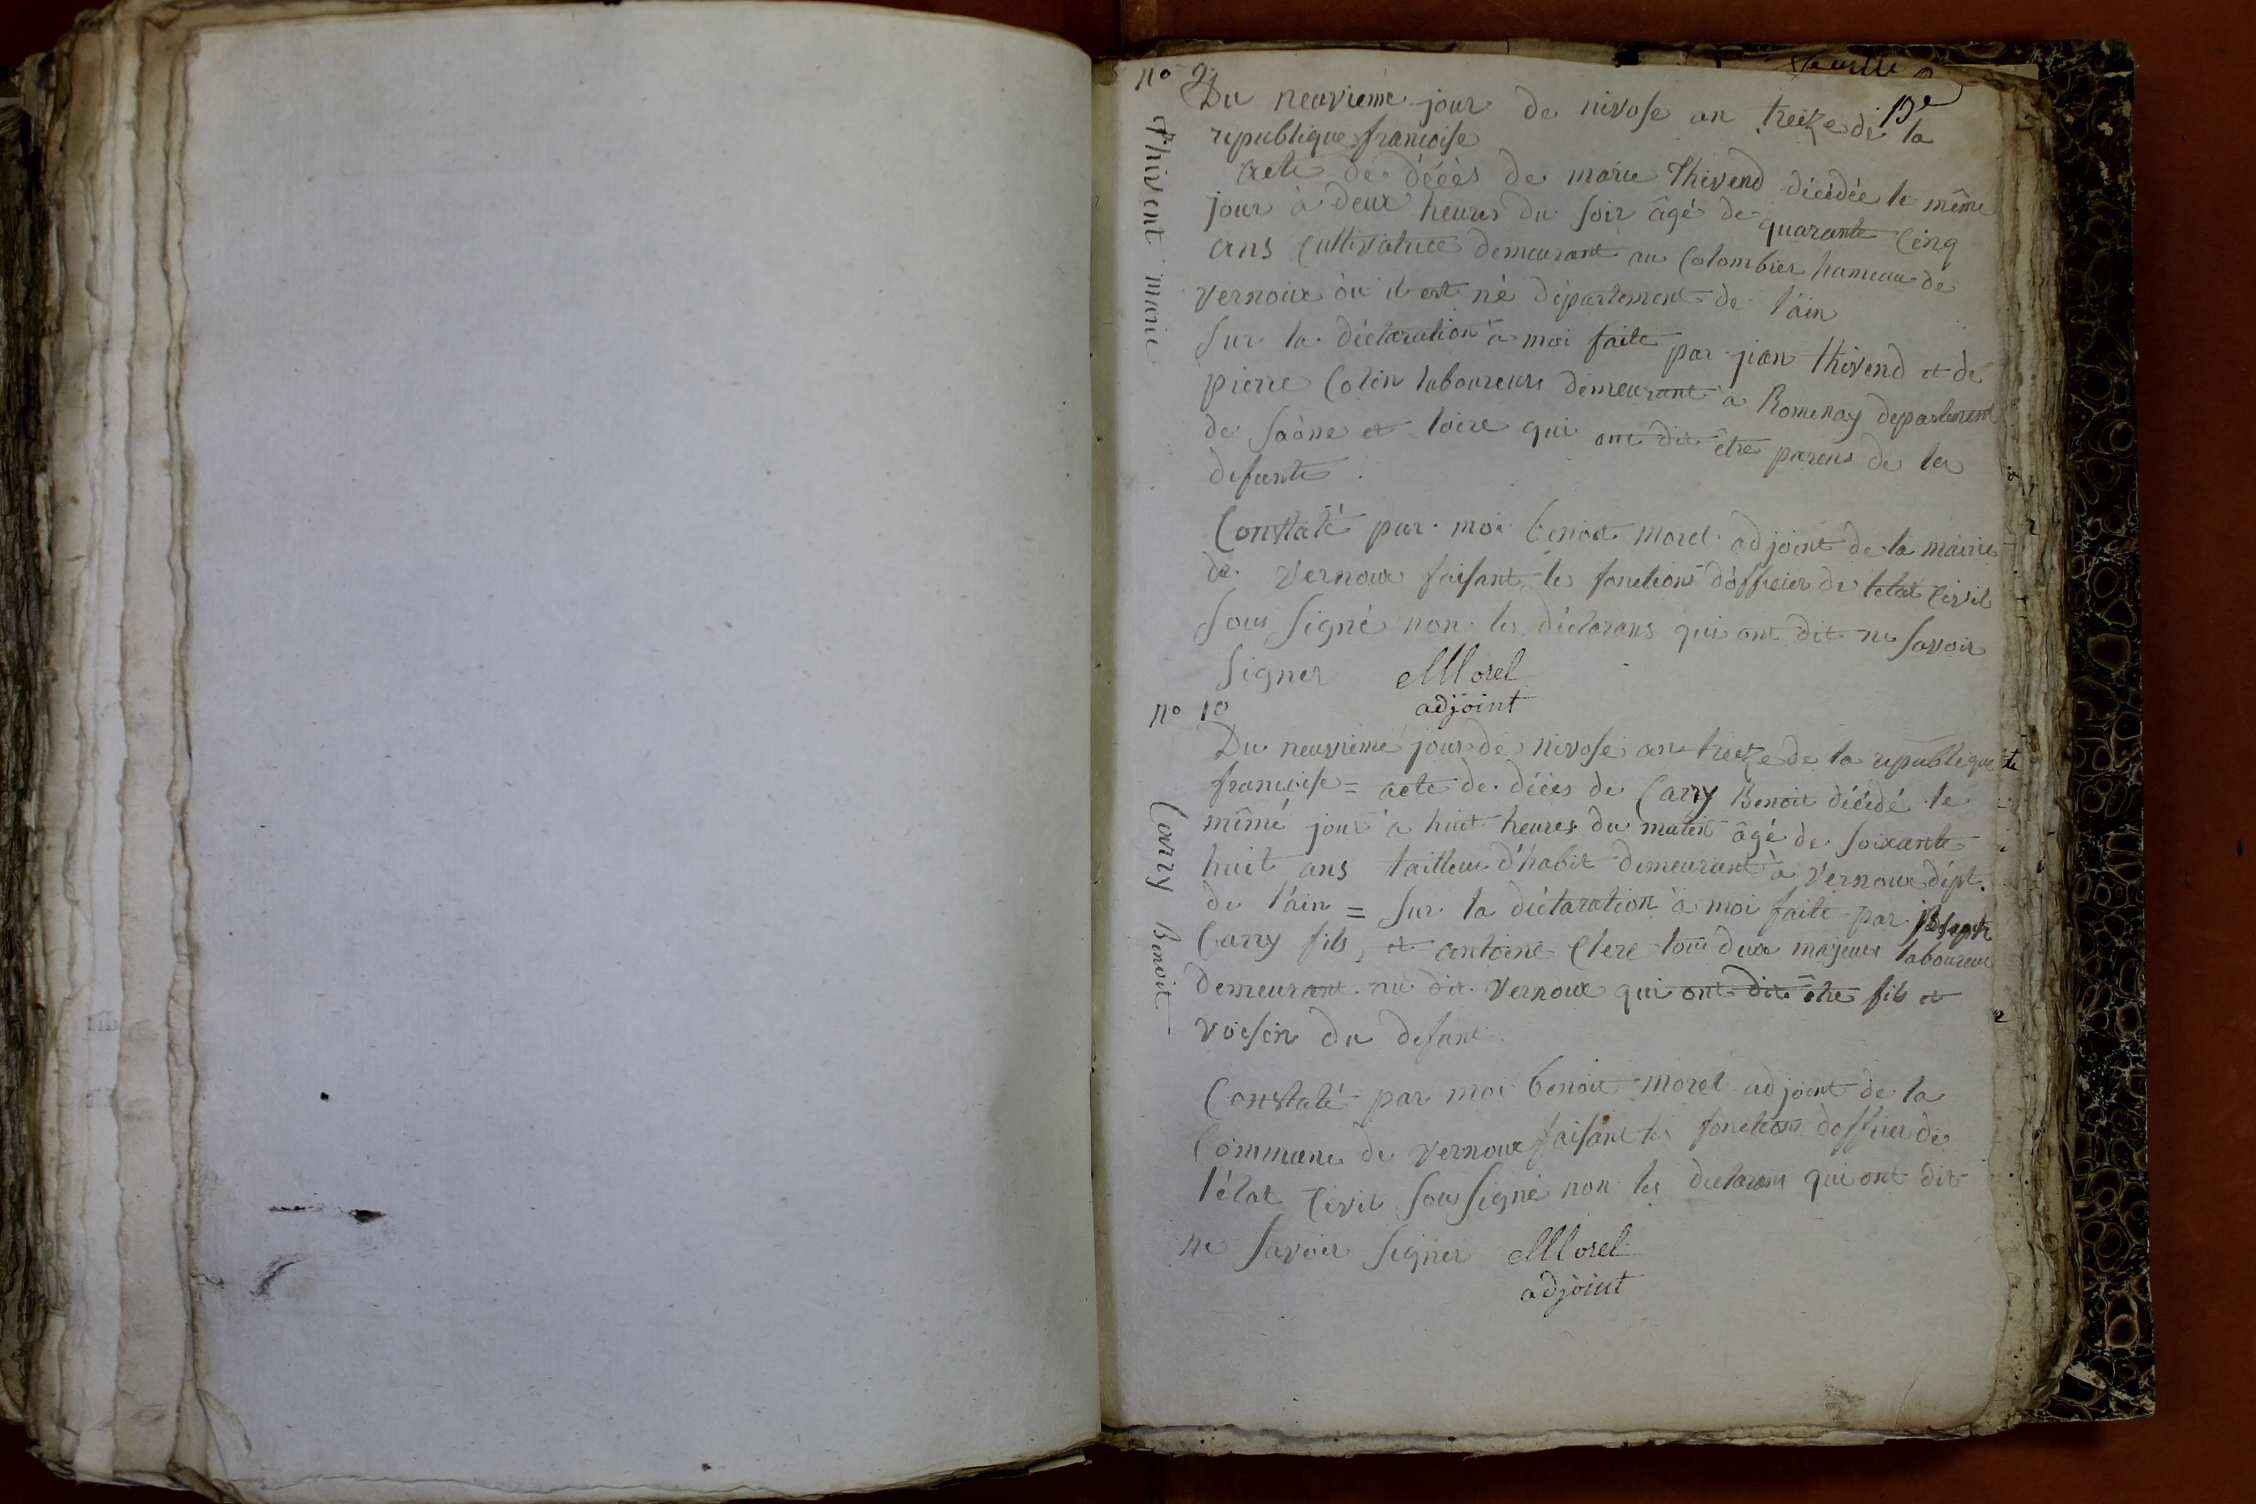 feuille
13e
no 9
Du neuvieme jour de nivose an treize de la
republique francoise
acte de décès de marie Thivend décédée le même
jour à deux heures du soir âgé de quarante cinq
ans cultivatrice demeurant au Colombier hameau de
vernoux où il est né département de l'ain
Sur la déclaration à moi faite par jean thivend et de
pierre Colin laboureurs demeurant à Romenay departement
de Saône et loire qui ont dit être parens de la
defunte
Constaté par moi benoit morel adjoint de la mairie
de vernoux faisant les fonctions d'officier de letat civil
Sous signé non les déclarans qui ont dit ne savoir
signer Morel
adjoint
Thivent marie
no 10
Du neuvieme jour de nivose an treize de la republique
francoise = acte de décès de Carry Benoit décédé le
même jour à huit heures du matin âgé de soixante
huit ans tailleur d'habit demeurant à vernoux dépt.
de l'ain = Sur la déclaration à moi faite par joseph
Carry fils, et antoine Clere tous deux majeurs laboureur
demeurant au dit vernoux qui ont dit être fils et
voisin du defunt
Constaté par moi benoit morel adjoint de la
Commune de vernoux faisant les fonctions dofficier de
l'état civil sous signé non les declarans qui ont dit
ne savoir signer Morel
adjoint
Carry Benoit